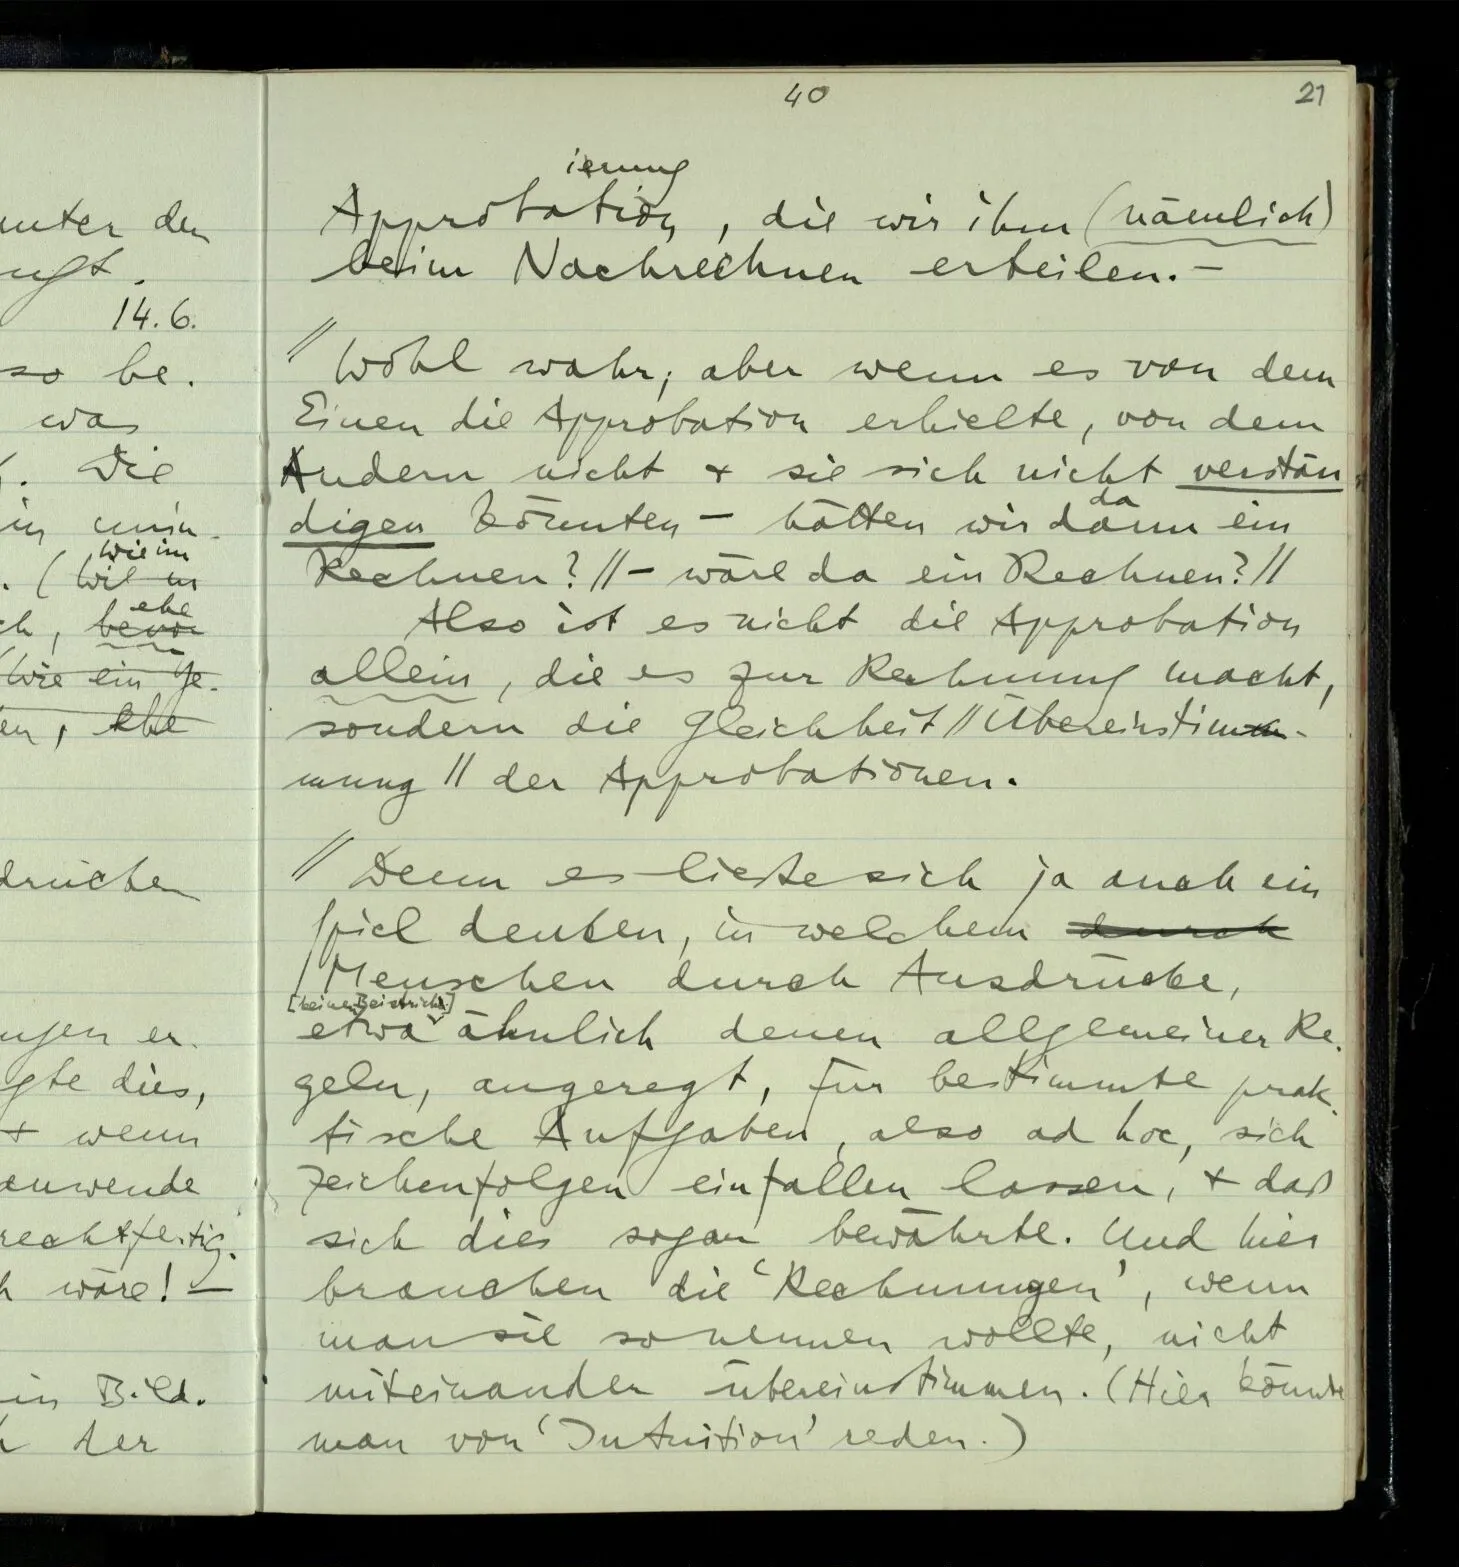 40
21
ierung
Approbation, die wir ihm (nämlich)
beim Nachrechnen erteilen. –
// Wohl wahr; aber wenn es von dem
Einen die Approbation erhielte, von dem
Andern nicht + sie sich nicht verstän
da
digen könnten – hätten wir dann ein
Rechnen? // – wäre da ein Rechnen? //
Also ist es nicht die Approbation
allein, die es zur Rechnung macht,
sondern die Gleichheit // Übereinstim-
mung // der Approbationen.
// Denn es ließe sich ja auch ein
Spiel denken, in welchem durch
Menschen durch Ausdrücke,
[keinen Beistrich!]
etwa ähnlich denen allgemeiner Re-
geln, angeregt, für bestimmte prak-
tische Aufgaben, also ad hoc, sich
Zeichenfolgen einfallen lassen, + daß
sich dies sogar bewährte. Und hier
brauchen die 'Rechnungen', wenn
man sie so nennen wollte, nicht
miteinander übereinstimmen. (Hier könnte
man von 'Intuition' reden.)
unter den
14.6.
so be.
was
. Die
in
wie im
ehe
bevor
wie ein Ge-
en, ehe
drücken
ungen er-
gte dies,
+ wenn
anwende
rechtfertig-
h wäre! –
in Bild.
der